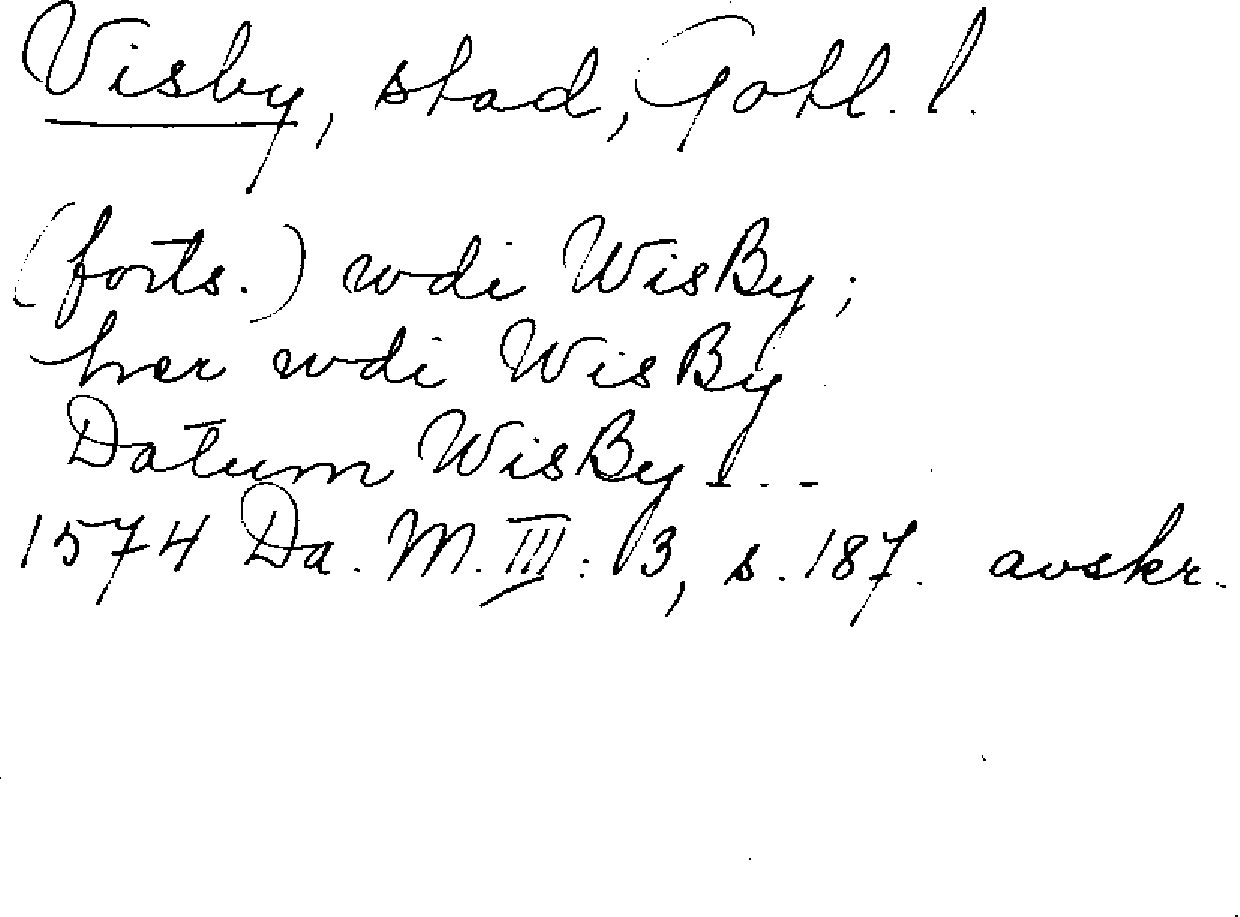 Visby, stad, Gotl. l.
(forts.) wdi WisBy;
her wdi WisBy
Datum WisBy - . -
1574 Da. M. III: 13, s. 187. avskr.